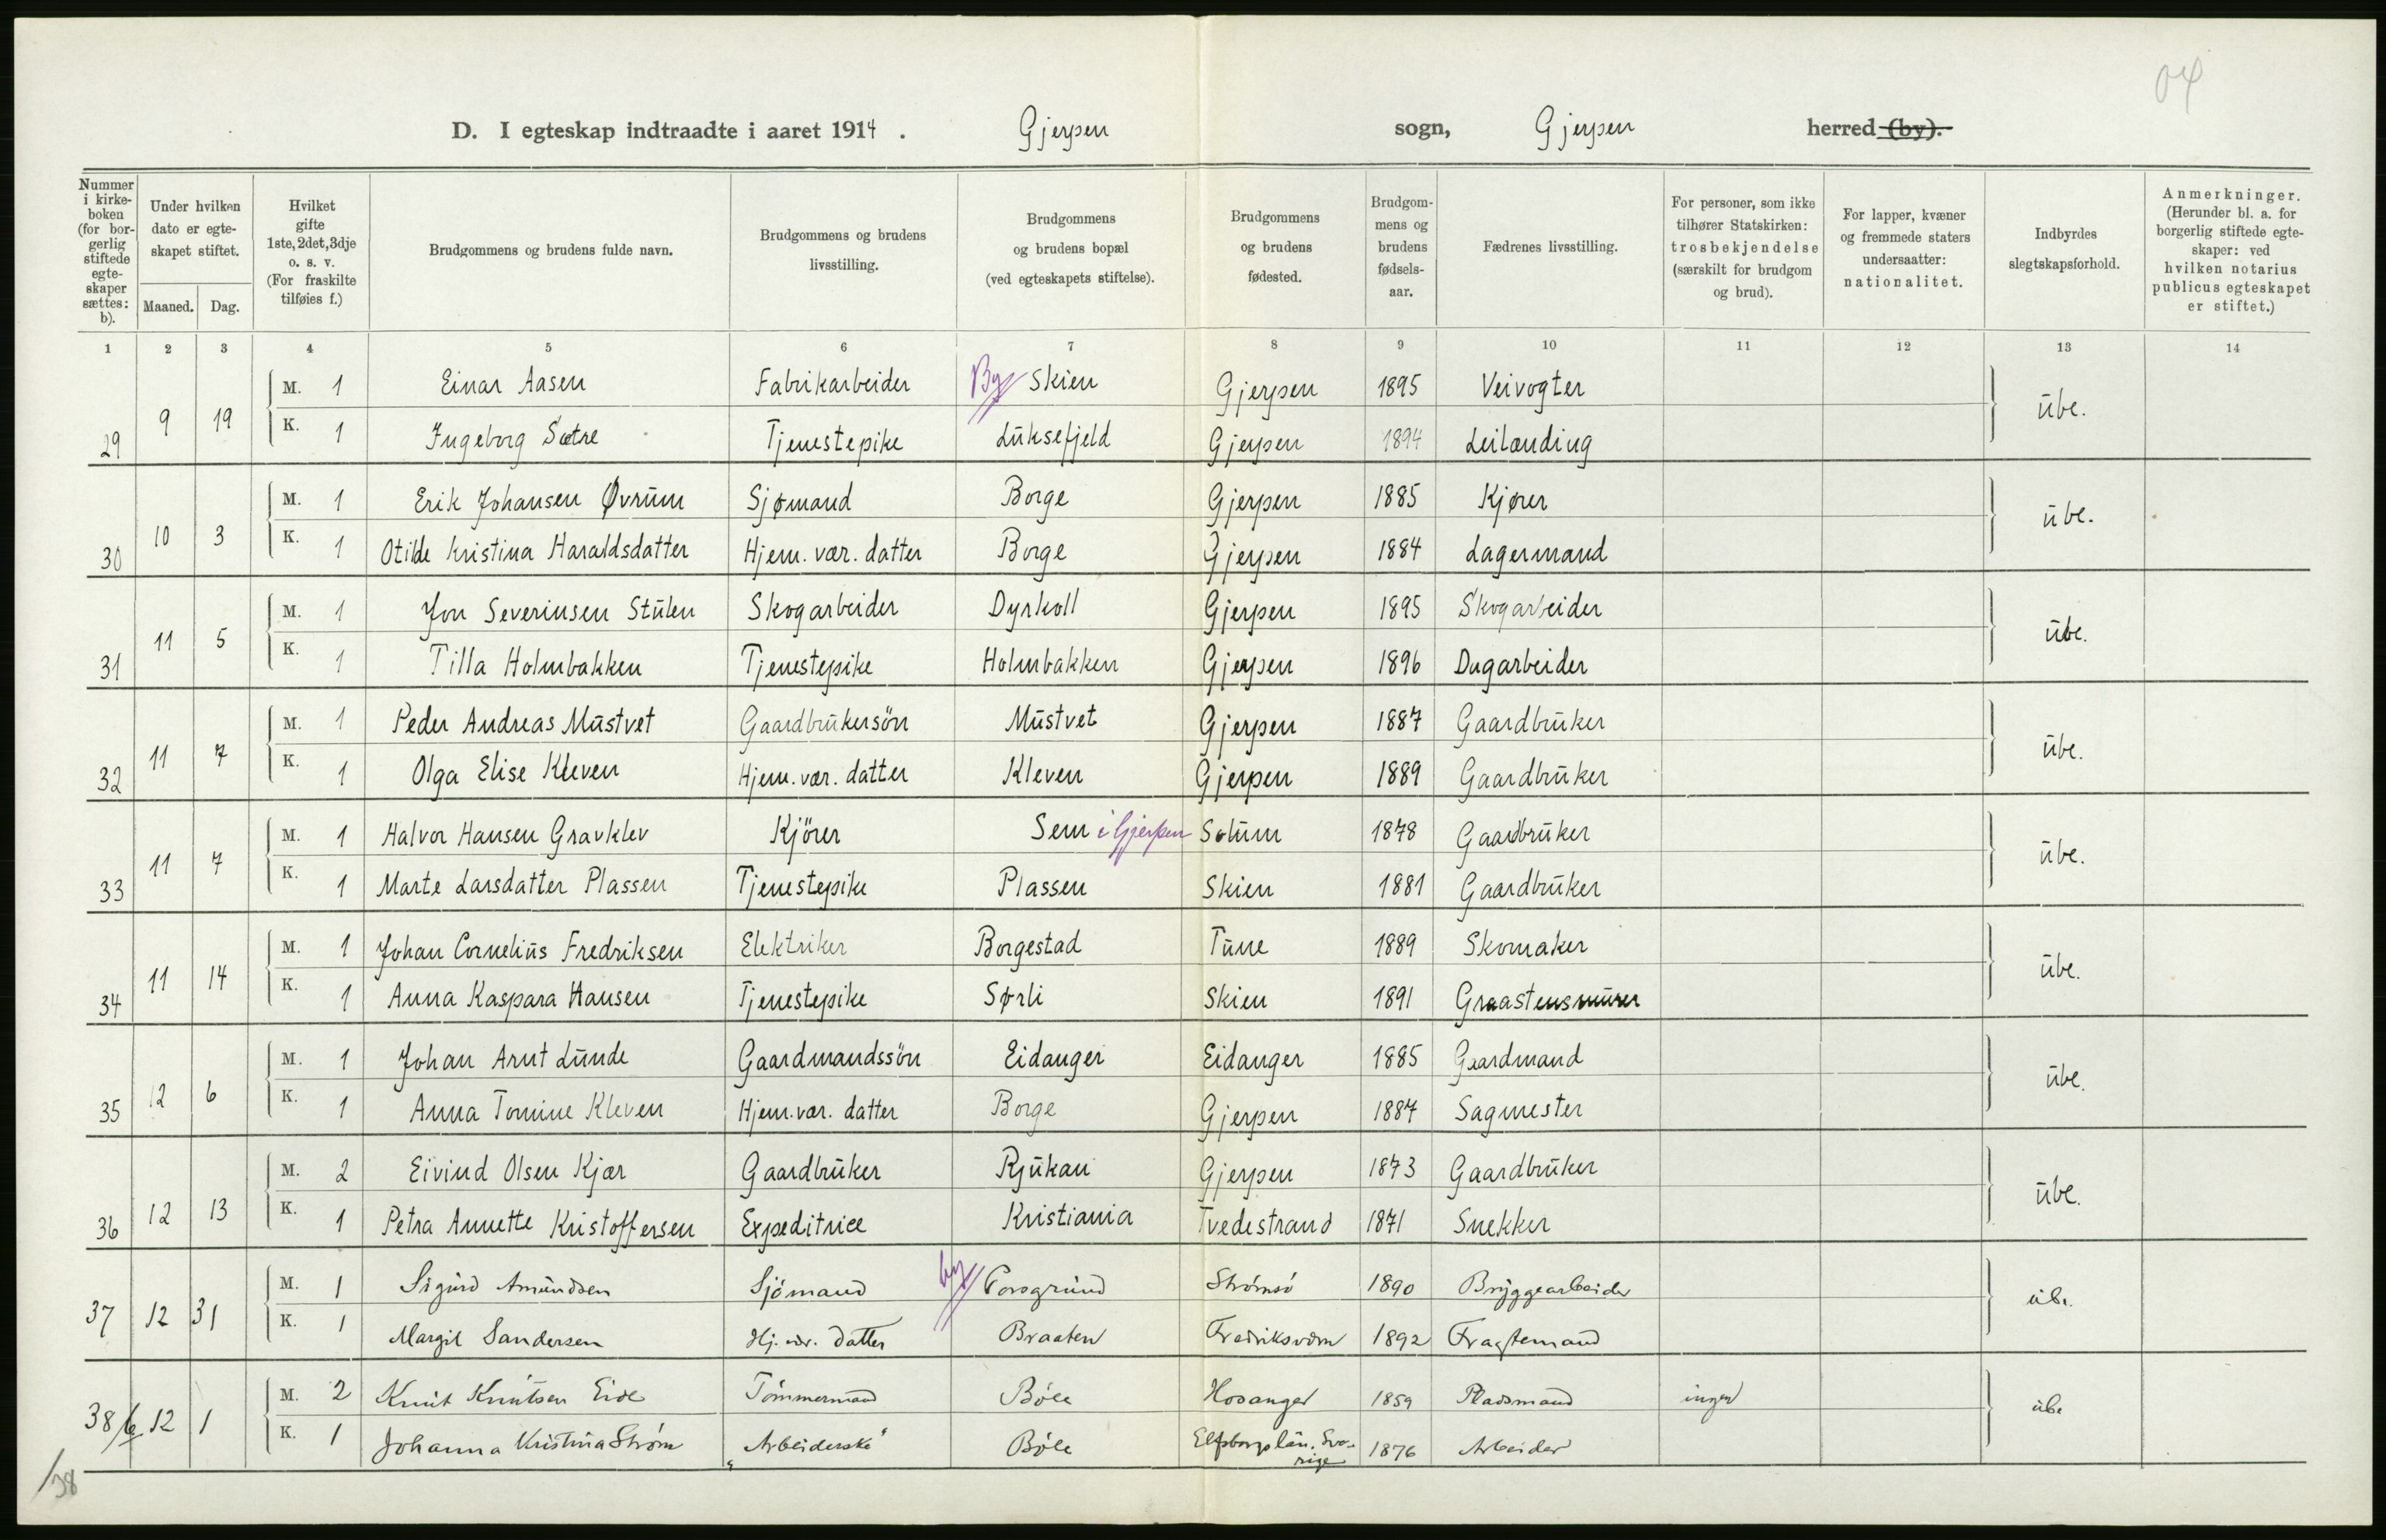 04
D. I egteskap indtraadte i aaret 1914. Gjerpen sogn, Gjerpen herred (by).
Nummer i kirkeboken (for borgerlig stiftede egteskaper sættes: b).
Under hvilken dato er egteskapet stiftet.
Maaned. Dag.
Hvilket gifte 1ste, 2det, 3dje o. s. v. (For fraskilte tilføies f.)
Brudgommens og brudens fulde navn.
Brudgommens og brudens livsstilling.
Brudgommens og brudens bopæl (ved egteskapets stiftelse).
Brudgommens og brudens fødested.
Brudgommens og brudens fødselsaar.
Fædrenes livsstilling.
For personer, som ikke tilhører Statskirken: trosbekjendelse (særskilt for brudgom og brud).
For lapper, kvæner og fremmede staters undersaatter: nationalitet.
Indbyrdes slegtskapsforhold.
Anmerkninger. (Herunder bl. a. for borgerlig stiftede egteskaper: ved hvilken notarius publicus egteskapet er stiftet.)
1 2 3 4 5 6 7 8 9 10 11 12 13 14
29 9 19 M. 1 Einar Aasen Fabrikarbeider By Skien Gjerpen 1895 Veivogter übe.
K. 1 Ingeborg Sætre Tjenestepike Lüksefjeld Gjerpen 1894 Leilænding
30 10 3 M. 1 Erik Johansen Øvrüm Sjømand Borge Gjerpen 1885 Kjører übe.
K. 1 Otilde Kristina Haraldsdatter Hjem. vær. datter Borge Gjerpen 1884 Lagermand
31 11 5 M. 1 Jon Severinsen Stülen Skogarbeider Dyrkoll Gjerpen 1895 Skogarbeider übe.
K. 1 Tilla Holmbakken Tjenestepike Holmbakken Gjerpen 1896 Dagarbeider
32 11 7 M. 1 Peder Andreas Müstvet Gaardbrükersön Müstvet Gjerpen 1887 Gaardbrüker übe.
K. 1 Olga Elise Kleven Hjem. vær. datter Kleven Gjerpen 1889 Gaardbrüker
33 11 7 M. 1 Halvor Hansen Gravklev Kjörer Sem i Gjerpen Solüm 1878 Gaardbrüker übe.
K. 1 Marte Larsdatter Plassen Tjenestepike Plassen Skien 1881 Gaardbrüker
34 11 14 M. 1 Johan Cornelius Fredriksen Elektriker Borgestad Tüne 1889 Skomaker übe.
K. 1 Anna Kaspara Hansen Tjenestepike Sørli Skien 1891 Graastensmürer
35 12 6 M. 1 Johan Arnt Lünde Gaardmandssön Eidanger Eidanger 1885 Gaardmand übe.
K. 1 Anna Tomine Kleven Hjem. vær. datter Borge Gjerpen 1887 Sagmester
36 12 13 M. 2 Eivind Olsen Kjær Gaardbrüker Rjükan Gjerpen 1873 Gaardbrüker übe.
K. 1 Petra Annette Kristoffersen Expeditrice Kristiania Tvedestrand 1871 Snekker
37 12 31 M. 1 Sigürd Amündsen Sjömand by Porsgründ Strömsö 1890 Bryggearbeider übe.
K. 1 Margit Sandersen Hj. vær. datter Braaten Fredriksværn 1892 Fragtemand
38 b 12 1 M. 2 Knüt Knütsen Eide Tömmermand Böle Hosanger 1859 Pladsmand ingen übe
K. 1 Johanna Kristina Ström Arbeiderske Böle Elfsborgs län. Sverige 1876 Arbeider
/38